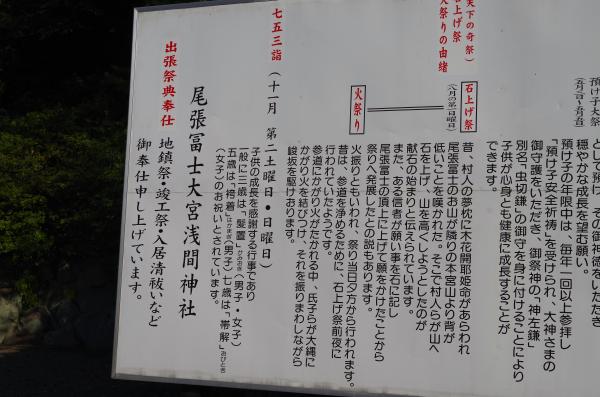 預け子大祭
(五月三日〜五月五日)
として預け、その御神徳をいただき
穏やかな成長を望む願い。
預け子の年限中は、毎年一回以上参拝し
「預け子安全祈禱」を受けられ、大神さまの
御守護をいただき、御祭神の「神左鎌」
別名「虫切鎌」の御守を身に付けることにより
子供が心身とも健康に成長することが
できます。
天下の奇祭)
石上げ祭
火祭りの由緒
石上げ祭
(八月の第一日曜日)
火祭り
昔、村人の夢枕に木花開耶姫命があらわれ
尾張冨士のお山が隣りの本宮山より背が
低いことを嘆かれた。そこで村人らが山へ
石を上げ、山を高くしようとしたのが
献石の始まりと伝えられています。
また、ある信者が願い事を石に記し
尾張冨士の頂上に上げて願をかけたことから
祭りへ発展したとの説もあります。
火振りともいわれ、祭り当日夕方から行われます。
昔は、参道を浄めるために、石上げ祭前夜に
行われていたようです。
参道にかがり火がたかれる中、氏子らが大縄に
かがり火を結びつけ、それを振りまわしながら
峻坂を駆けおります。
七五三詣
(十一月 第二土曜日・日曜日)
子供の成長を感謝する行事であり
一般に三歳は「髪置」かみおき(男子・女子)
五歳は「袴着」はかまぎ(男子)七歳は「帯解」おびとき
(女子)のお祝いとされています。
尾張冨士大宮浅間神社
出張祭典奉仕
地鎮祭・竣工祭・入居清祓いなど
御奉仕申し上げています。